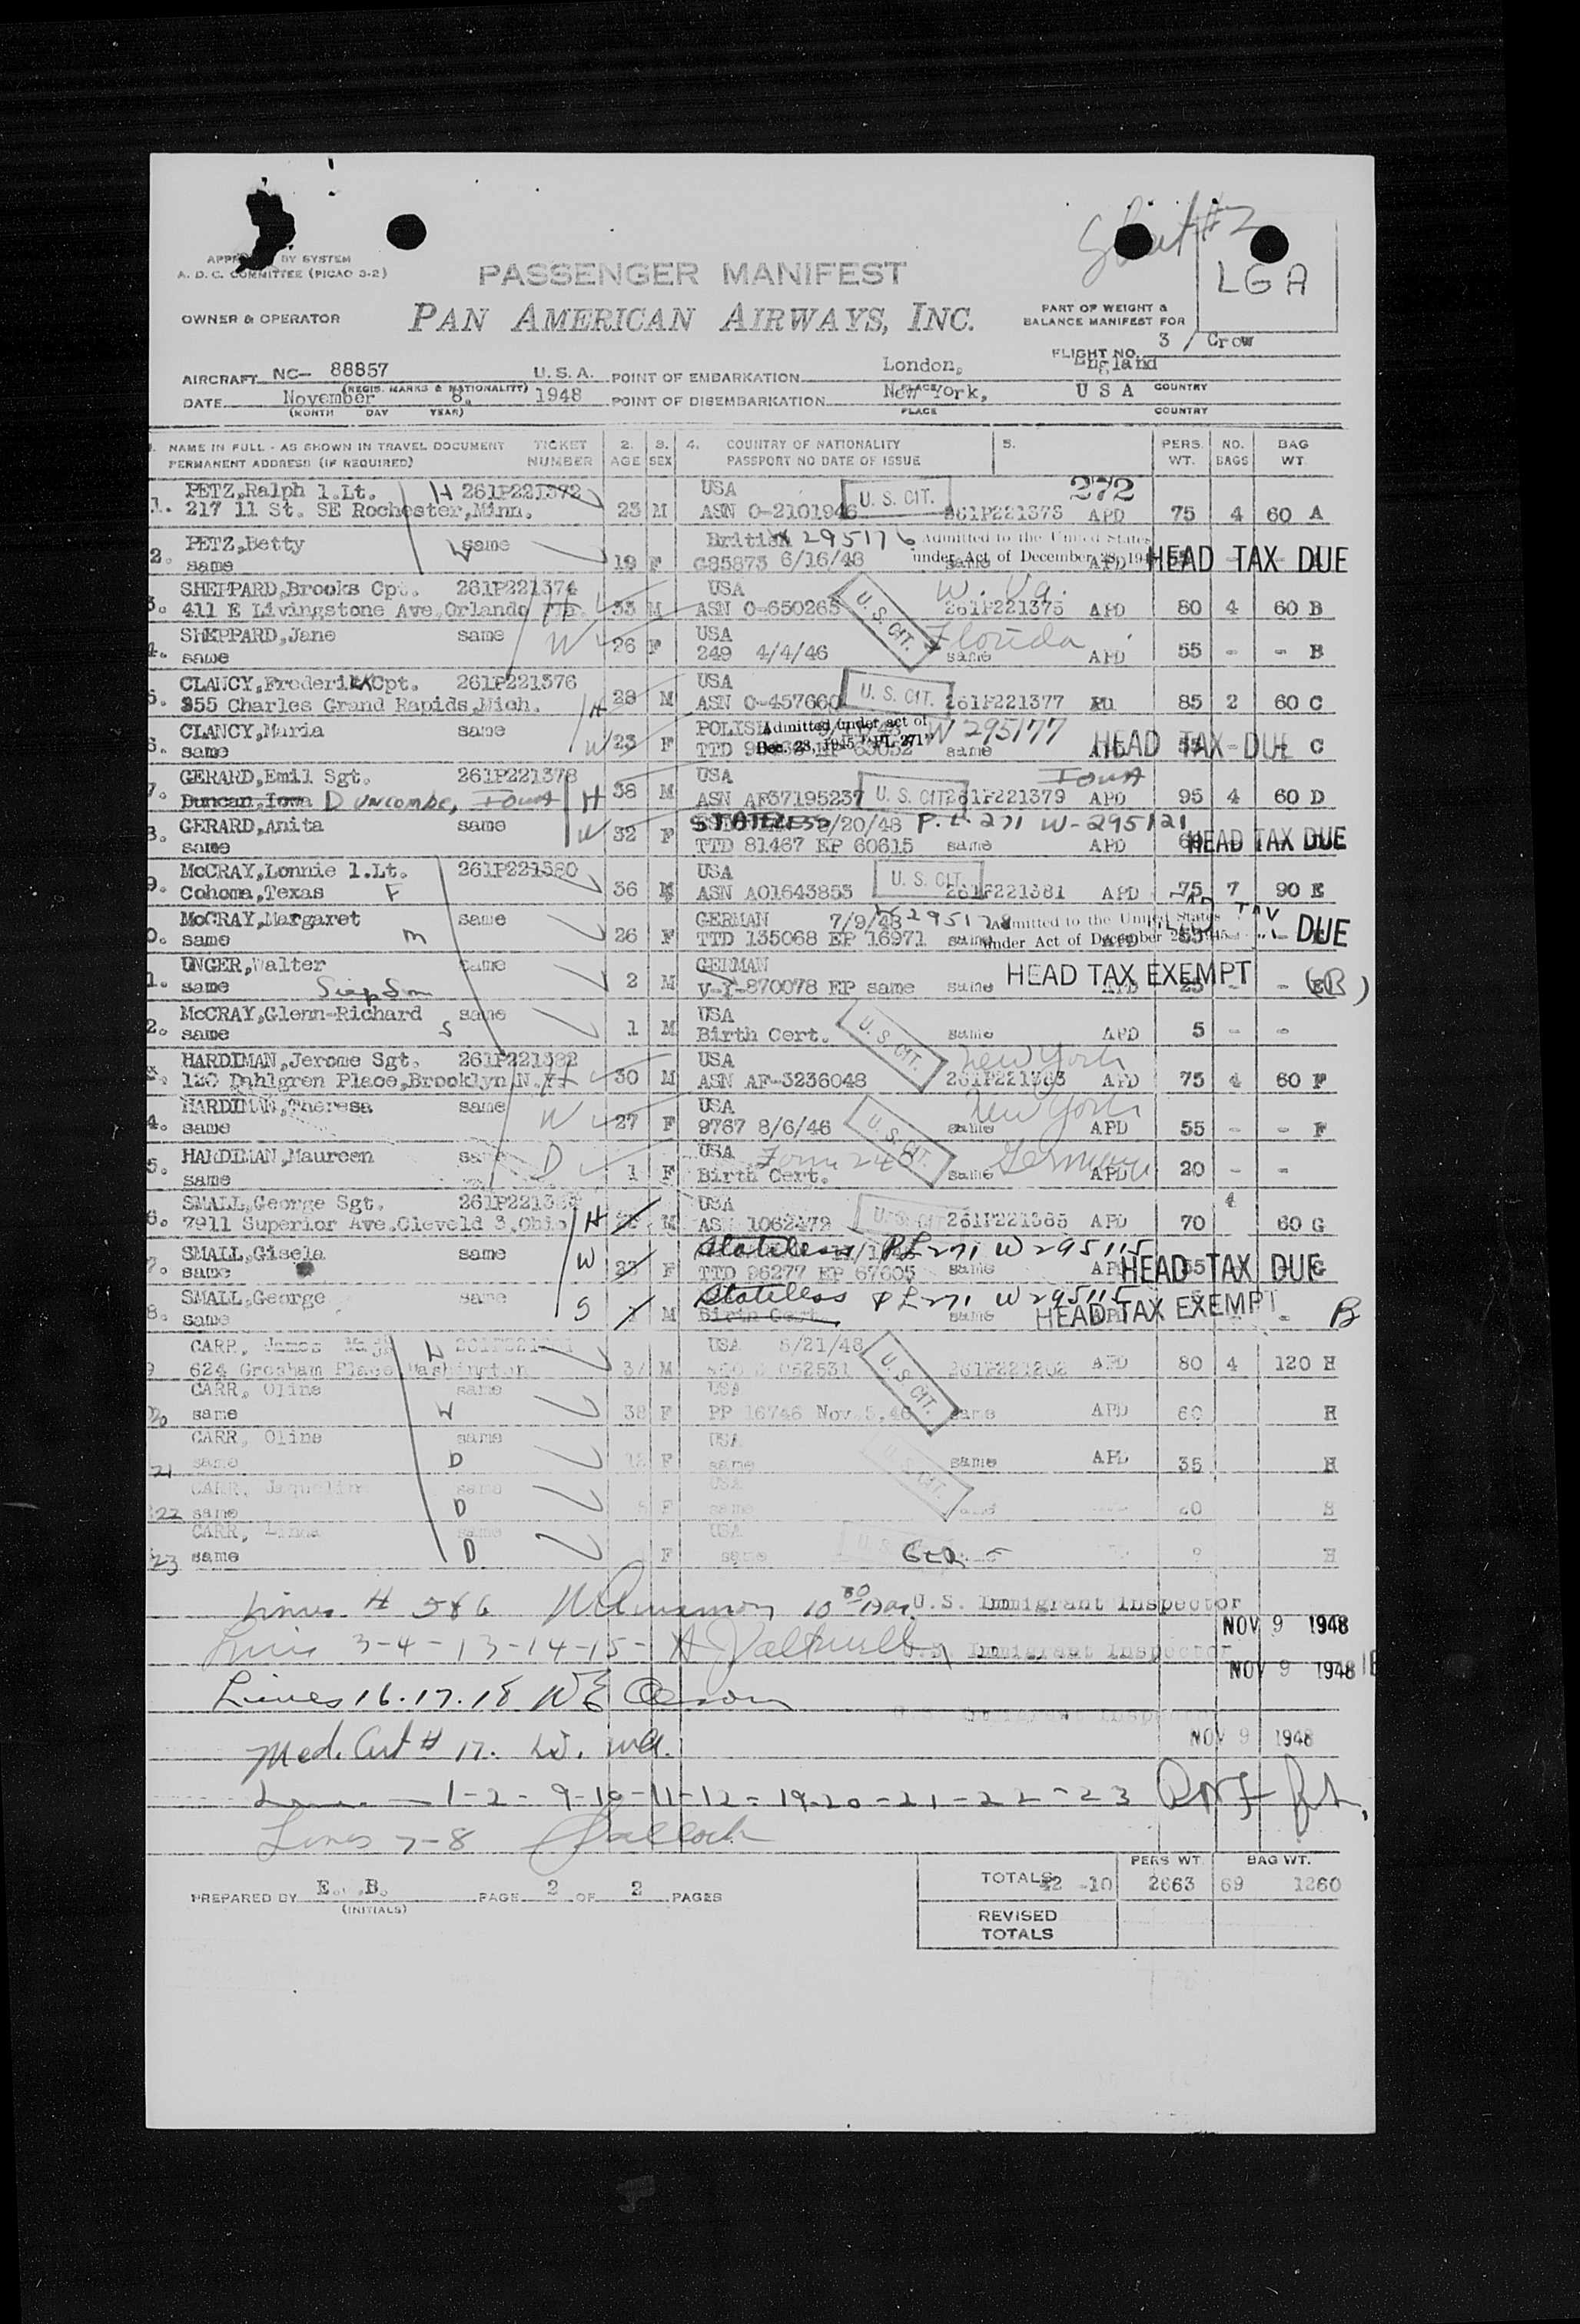 Sheet #2
LGA
BY SYSTEM
A. D. C. COMMITTEE (PICAO 3-2)
PASSENGER MANIFEST
OWNER & OPERATOR
PAN AMERICAN AIRWAYS, INC.
PART OF WEIGHT &
BALANCE MANIFEST FOR
3 / Crow
FLIGHT NO.
AIRCRAFT NC- 88857 U.S.A. POINT OF EMBARKATION London, England
(REGIS. MARKS & NATIONALITY) PLACE COUNTRY
DATE November 8, 1948 POINT OF DISEMBARKATION New York, U S A
(MONTH DAY YEAR) PLACE COUNTRY
1. NAME IN FULL - AS SHOWN IN TRAVEL DOCUMENT TICKET 2. 3. 4. COUNTRY OF NATIONALITY 5. PERS. NO. BAG
PERMANENT ADDRESS (IF REQUIRED) NUMBER AGE SEX PASSPORT NO DATE OF ISSUE WT. BAGS WT.
PETZ,Ralph 1.Lt. H 261P221372 USA U. S. CIT. 272
1. 217 11 St. SE Rochester,Minn. 23 M ASN O-2101946 261P221373 APD 75 4 60 A
PETZ,Betty W same British W 295176 Admitted to the United States
2. same 19 F G85873 6/16/48 same under Act of December 28, 194 APD HEAD TAX DUE
SHEPPARD,Brooks Cpt. 261P221374 USA W. Va.
3. 411 E Livingstone Ave,Orlando Fla. H 33 M ASN O-650265 U. S. CIT. 261P221375 APD 80 4 60 B
SHEPPARD,Jane same W USA Florida
4. same 26 F 249 4/4/46 same APD 55 - - B
CLANCY,Frederik Cpt. 261P221376 USA U. S. CIT.
5. 355 Charles Grand Rapids,Mich. H 28 M ASN O-457660 261P221377 85 2 60 C
CLANCY,Maria same POLISH Admitted under act of W 295177
6. same W 23 F TTD Dec. 28, 1945 "PL 271" same HEAD TAX DUE C
GERARD,Emil Sgt. 261P221378 USA Iowa
7. Duncan,Iowa Duncombe, Iowa H 38 M ASN AF37195237 U. S. CIT. 261P221379 APD 95 4 60 D
GERARD,Anita same STATELESS /20/48 P.L. 271 W-295121
8. same W 32 F TTD 81467 EP 60615 same APD HEAD TAX DUE
McCRAY,Lonnie 1.Lt. 261P221380 USA U. S. CIT.
9. Cohoma,Texas F 36 M ASN AO1643853 261P221381 APD 75 7 90 E
McCRAY,Margaret same GERMAN 7/9/48 W 295178 Admitted to the United States
10. same m 26 F TTD 135068 EP 16971 same under Act of December 28, 1945 HEAD TAX DUE
UNGER,Walter same GERMAN HEAD TAX EXEMPT
11. same Step Son 2 M V-I-870078 EP same same APD 25 - - E (B)
McCRAY,Glenn-Richard same USA
12. same S 1 M Birth Cert. U. S. CIT. same APD 5 - -
HARDIMAN,Jerome Sgt. 261P221382 USA New York
13. 120 Dahlgren Place,Brooklyn,N.Y. H 30 M ASN AF-3236048 261P221383 APD 75 4 60 F
HARDIMAN,Theresa same W USA New York
14. same 27 F 9767 8/6/46 U. S. CIT. same APD 55 - - F
HARDIMAN,Maureen same D USA Form 240 Germany
15. same 1 F Birth Cert. same APD 20 - -
SMALL,George Sgt. USA 4
16. 7911 Superior Ave,Cleveld 3,Ohio H M ASN 1062479 U. S. CIT 261P221385 APD 70 60 G
SMALL,Gisela same Stateless PL 271 W 295115
17. same W F TTD 96277 EP 67605 same HEAD TAX DUE G
SMALL,George same Stateless PL 271 W 295115
18. same S M Birth Cert. same HEAD TAX EXEMPT - B
CARR, James Maj. H USA 5/21/48
19 624 Gresham Place Washington 37 M U. S. CIT. 261P221202 APD 80 4 120 H
CARR, Oline same USA
20 same W 38 F PP 16746 Nov.5,46 same APD 60 H
CARR, Oline same USA
21 same D F same U. S. CIT. same APD 35 H
CARR, Jaqueline same USA
22 same D F same
CARR, same USA
23 same D F same H
Lines # 5 & 6 10 30 U.S. Immigrant Inspector
NOV 9 1948
Lines 3-4-13-14-15- U.S. Immigrant Inspector
NOV 9 1948
Lines 16.17.18 WE
U.S. Immigrant Inspector
Med. Cert # 17. NOV 9 1948
1-2-9-10-11-12-19-20-21-22-23
Lines 7-8
PREPARED BY E. B. PAGE 2 OF 2 PAGES
(INITIALS)
PERS WT. BAG WT.
TOTALS 42 -10 2663 69 1260
REVISED
TOTALS